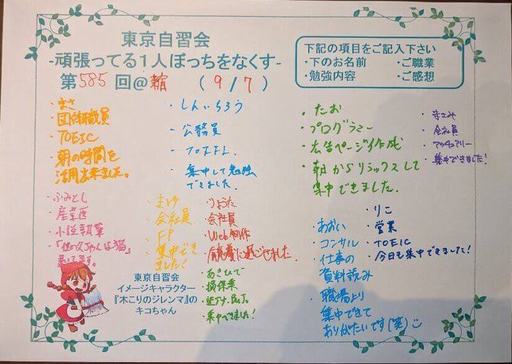 東京自習会
-頑張ってる１人ぼっちをなくす-
第585回@ (9/7)
下記の項目をご記入下さい
・下のお名前 ・ご職業
・勉強内容 ・ご感想
・まさ
・団体職員
・TOEIC
・朝の時間を
活用出来ました。
・しんいちろう
・公務員
・集中して勉強
できました
・たお
・プログラミー
・広告ページ作成
・朝からリラックスして
集中できました.
・まさみ
・会社員
・集中できました!
・ふみとし
・産業医
・小説執筆
・まゆ
・会社員
・FP
・集中でき
ました!
・りょうた
・会社員
・Web制作
・有意義に過ごせました。
・あきひで
・損保業
・集中できました!
・あおい
・コンサル
・仕事の
資料読み
・職場より
集中できて
ありがたいです(笑)
・りこ
・営業
・TOEIC
・今日も集中できました!
東京自習会
イメージキャラクター
『木こりのジレンマ』の
キコちゃん